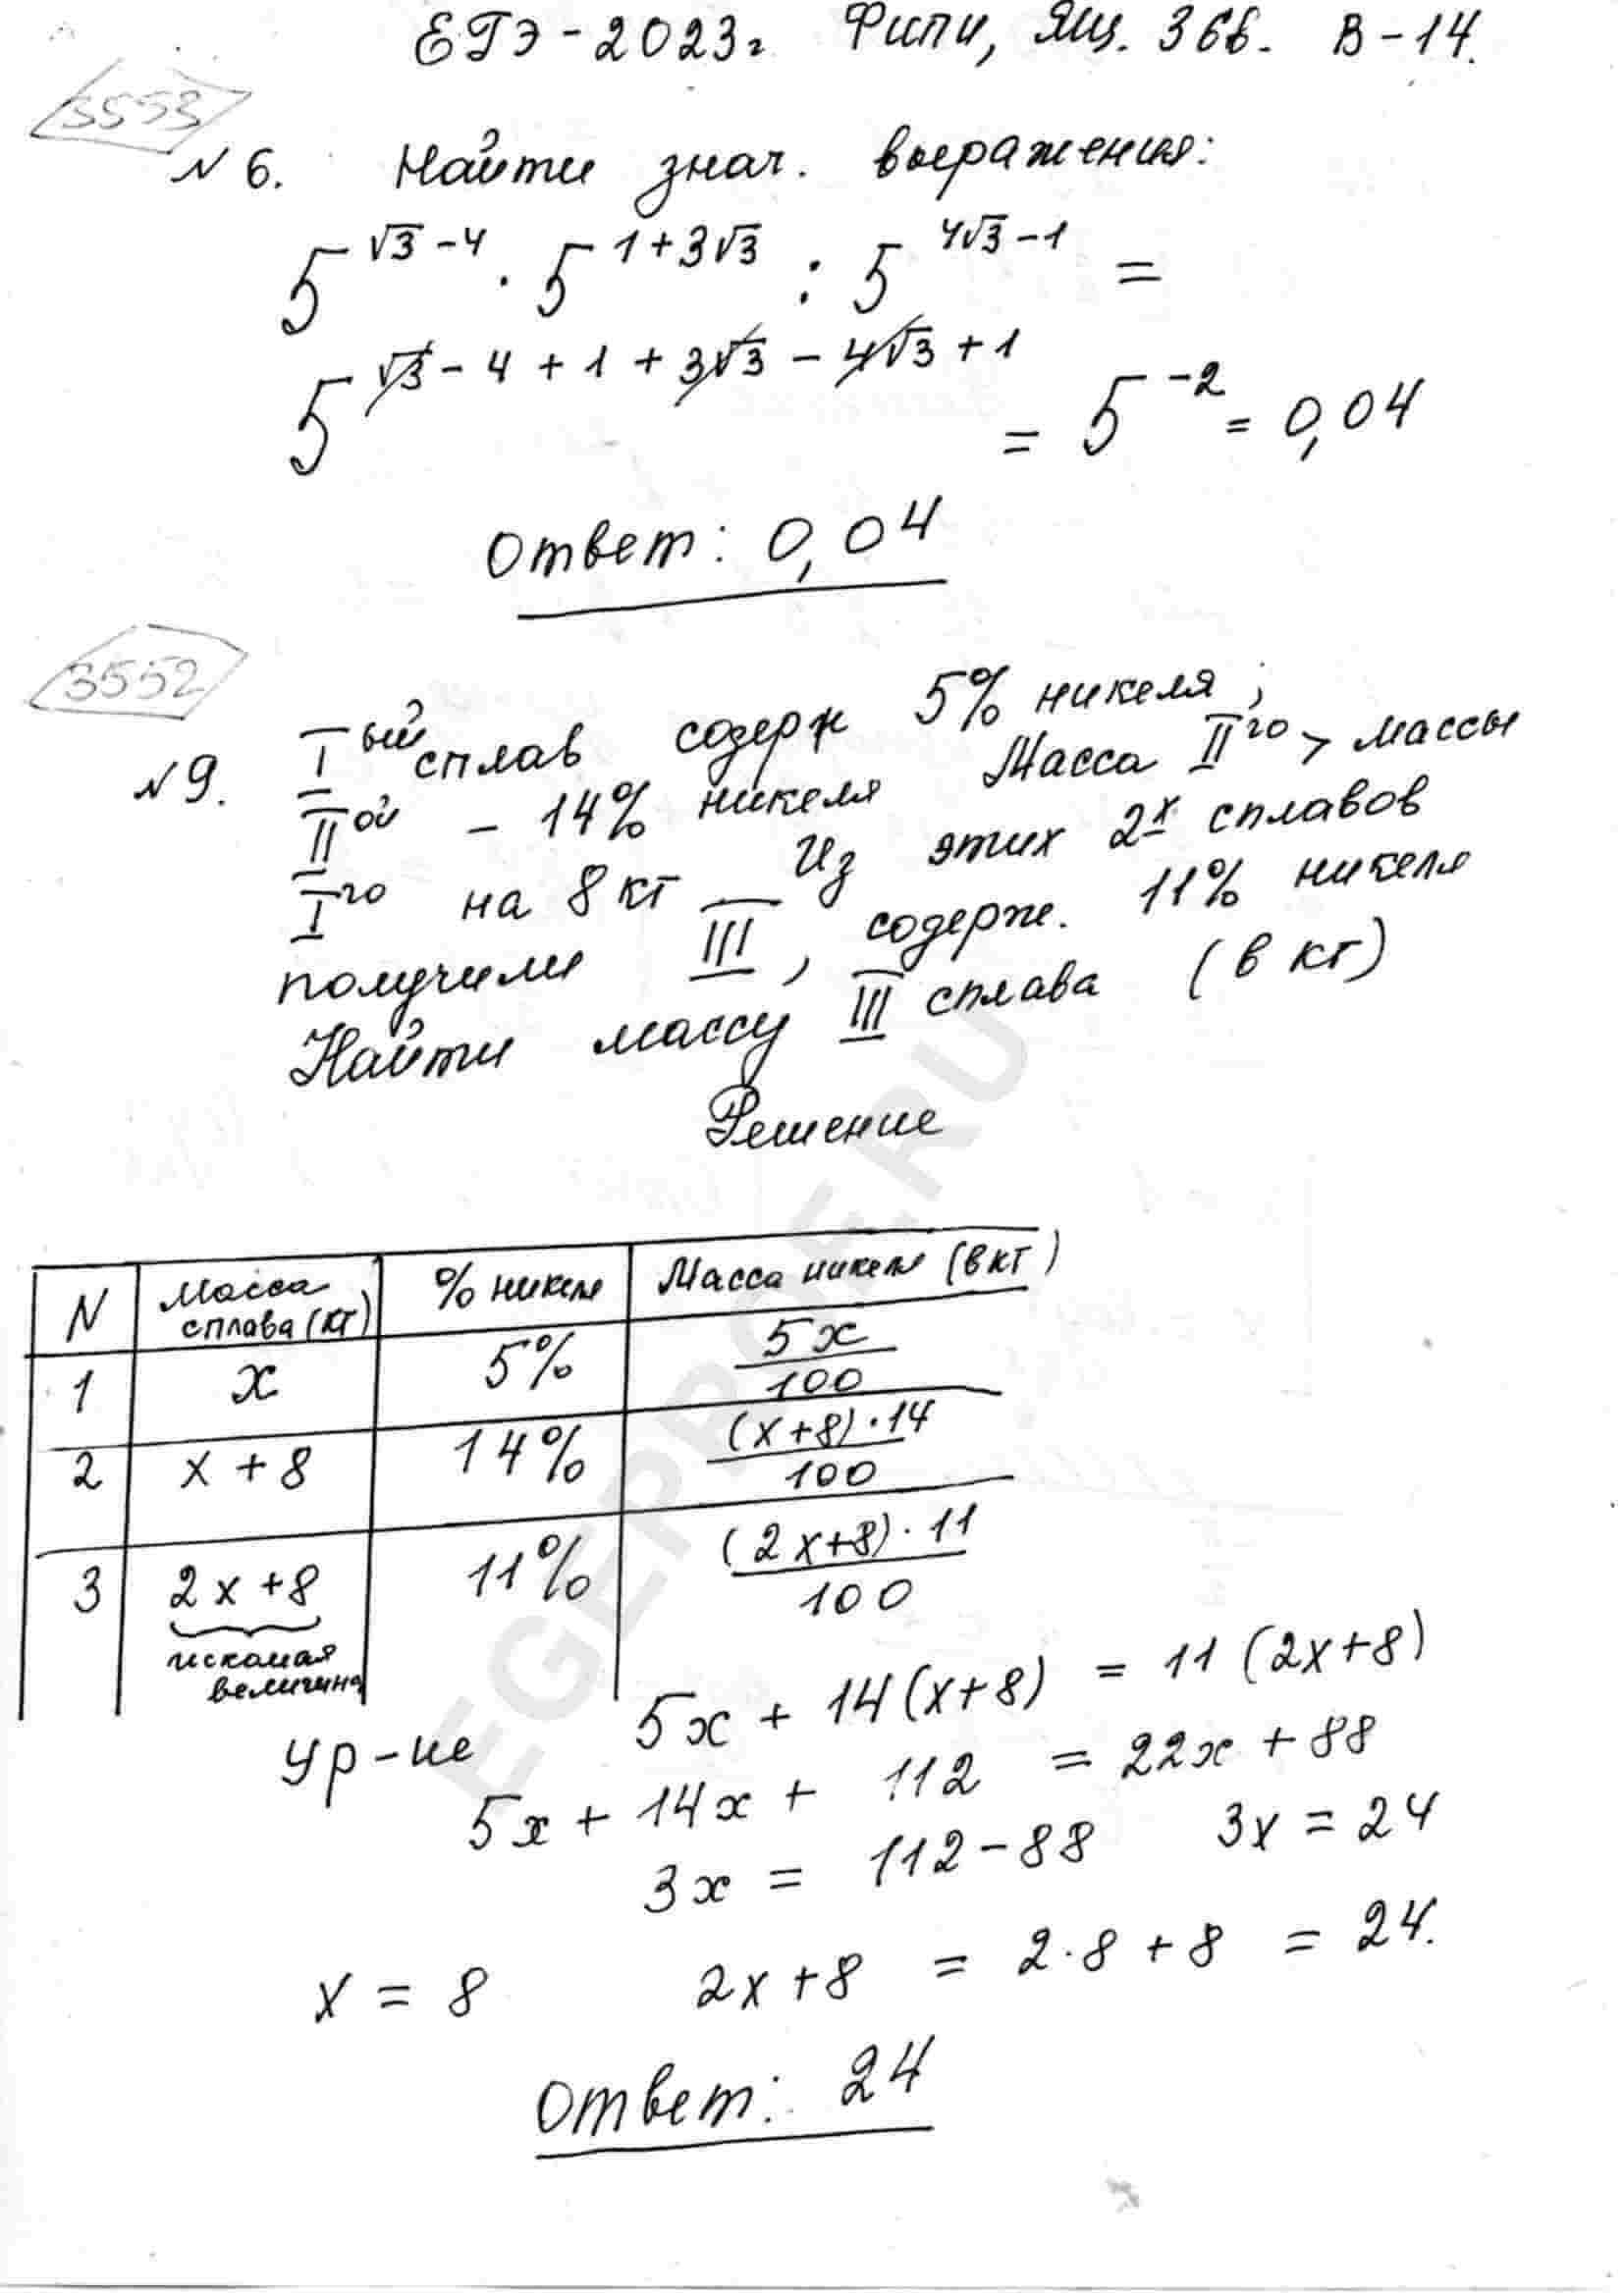 ЕГЭ-2023г Фипи, Ящ. 36в. В-14.
3553
№6. Найти знач. выражения:
5^(√3-4) · 5^(1+3√3) : 5^(4√3-1) =
5^(√3-4+1+3√3-4√3+1) = 5^(-2) = 0,04
Ответ: 0,04
3552
№9. I^ый сплав содерж 5% никеля;
II^ой – 14% никеля Масса II^го > массы
I^го на 8 кг Из этих 2х сплавов
получили III, содерж. 11% никеля
Найти массу III сплава (в кг)
Решение
N Масса сплава (кг) % никеля Масса никеля (в кг)
1 x 5% 5x/100
2 x+8 14% (x+8)·14/100
3 2x+8 11% (2x+8)·11/100
искомая
величина
ур-ие 5x + 14(x+8) = 11(2x+8)
5x + 14x + 112 = 22x + 88
3x = 112-88 3x = 24
x = 8 2x+8 = 2·8+8 = 24.
Ответ: 24
EGEPROF.RU